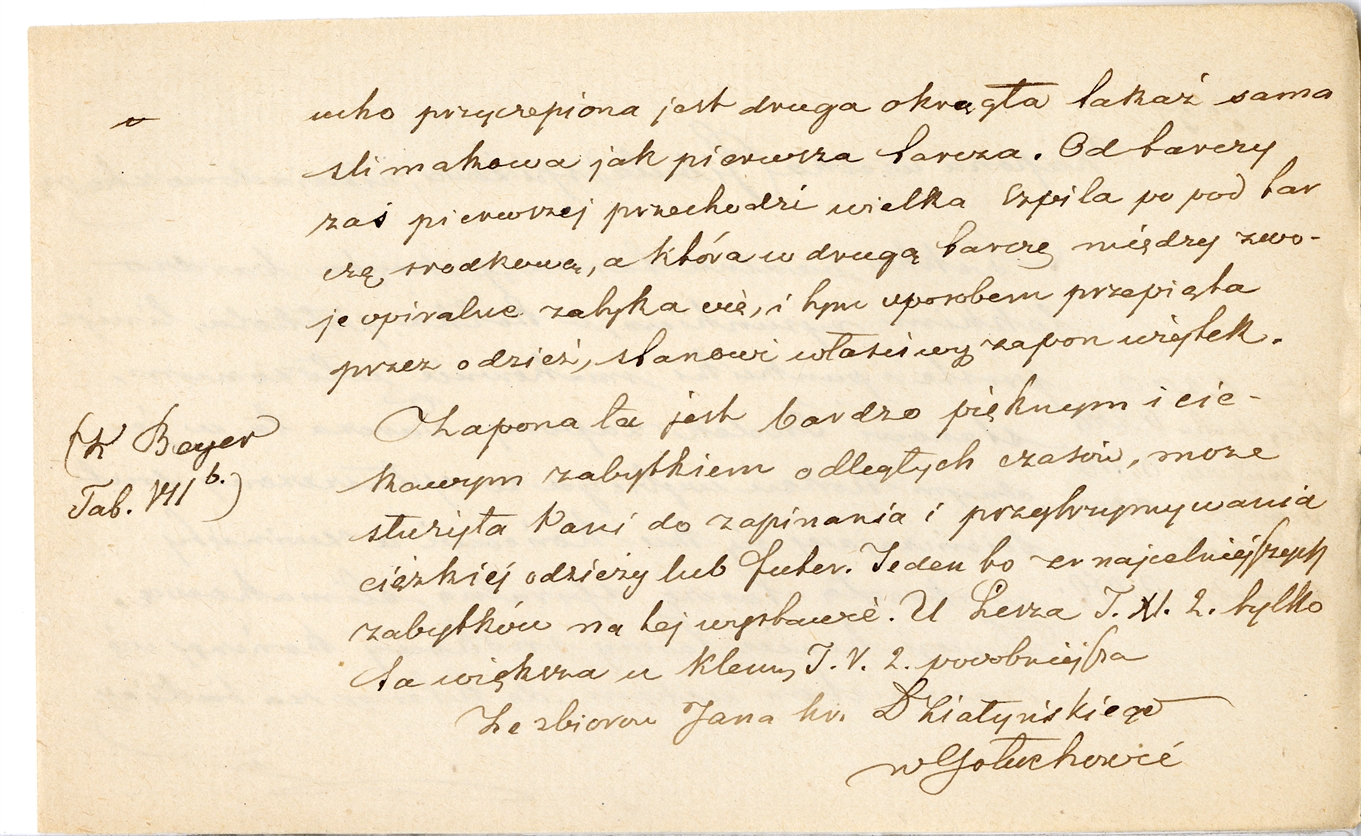 ucho przyczepiona jest druga okrągła takaż sama
slimakowa jak pierwsza tarcza. Od tarczy
zaś pierwszej przechodzi wielka szpila po pod tar
czą srodkową, a która w drugą tarczę między zwo-
je spiralne zatyka się, i tym sposobem przepięta
przez odzież, stanowi właściwy zapon więzłek.
Zapona ta jest bardzo pięknym i cie-
kawym zabytkiem odległych czasów, może
służyła Pani do zapinania i przytrzymywania
ciężkiej odzieży lub futer. Jeden to ze najcelniejszych
zabytków na tej wystawie. U Lerza T. XI. 2. tylko
ta większa u Klemy T. V. 2. podobniejsza
Ze zbiorow Jana hr. Działyńskiego
w Gołuchowie
(K Beyer
Tab. VII b.)